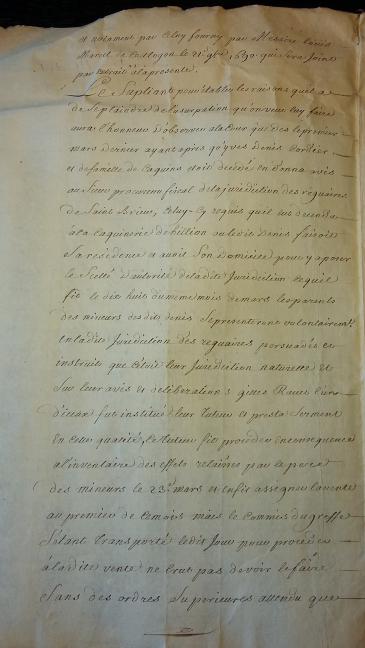 et notament par celuy fourny par Messire Louis
Marcel de Coetlogon le 21e 9bre 1690 qui sera joint
par extrait a la presente.
Le Supliant pour établir les raisons quil a
de se plaindre de l'usurpation qu'on veut luy faire
aura l'honneur d'observer a la Cour que des le premier
mars dernier ayant apres qu'yves Denis cordier
et de famille de Caquins etoit decédé on donna avis
au Sieur procureur fiscal de la jurisdiction des reguaires
de Saint Brieuc, Celuy-Cy requis quil fut decendu
a la Caquinerie d'hillion ou ledit Denis faisoit
Sa residence et avoit Son Domicile pour y aposer
le Scellé D'autorité de ladite Jurisdiction lequel
fit le dix huit du meme mois de mars les parents
des mineurs dudit denis Se presenterent volontairemt
en ladite Jurisdiction des reguaires persuadés et
instruits que C'étoit leur Jurisdiction naturelle et
Sur leur avis et deliberations gilles Rault
fut institué leur Tuteur et presta Serment
en cette qualité, le tuteur fit proceder en consequence
a l'inventaire des effets relaissés par le pere
des mineurs le 23e mars et enfin assigner la vente
au premier de Ce mois mais le Commis du greffe
S'étant Transporté ledit Jour pour proceder
a ladite vente ne Crut pas devoir le faire
Sans des ordres Superieures attendu que